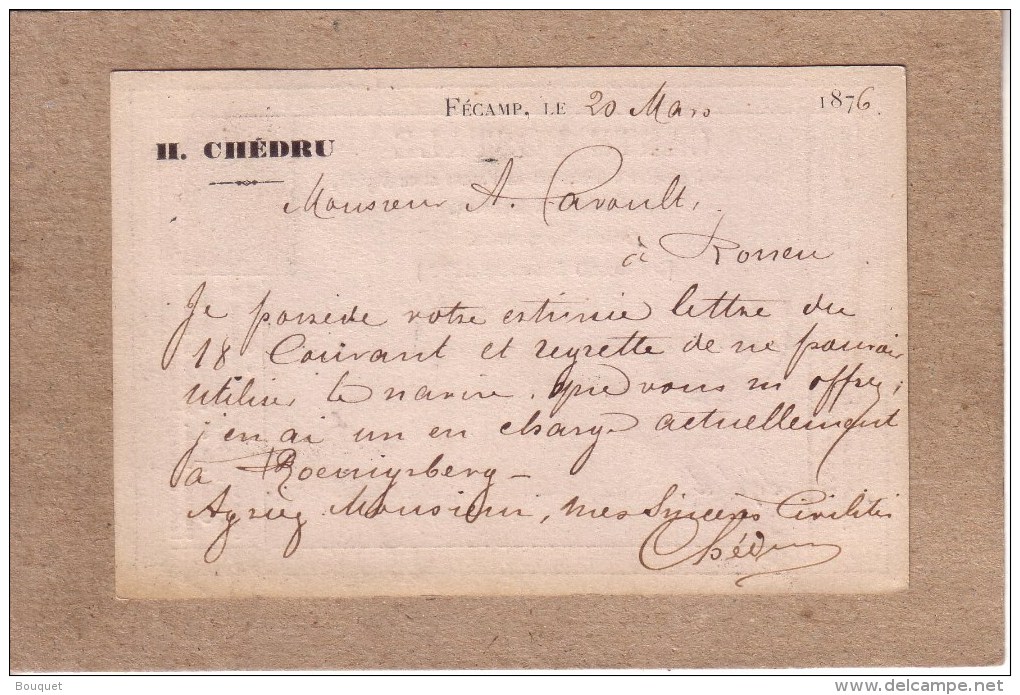 FÉCAMP, LE 20 Mars 1876
H. CHÉDRU
Monsieur A. Pavoult,
à Rouen
Je possède votre estimée lettre du
18 Courant et regrette de ne pouvoir
utiliser le navire que vous m offrez,
j en ai un en charge actuellement
à Koenigsberg -
Agréez Monsieur, mes Sincères Civilités
Chédru
Bouquet
www.delcampe.net